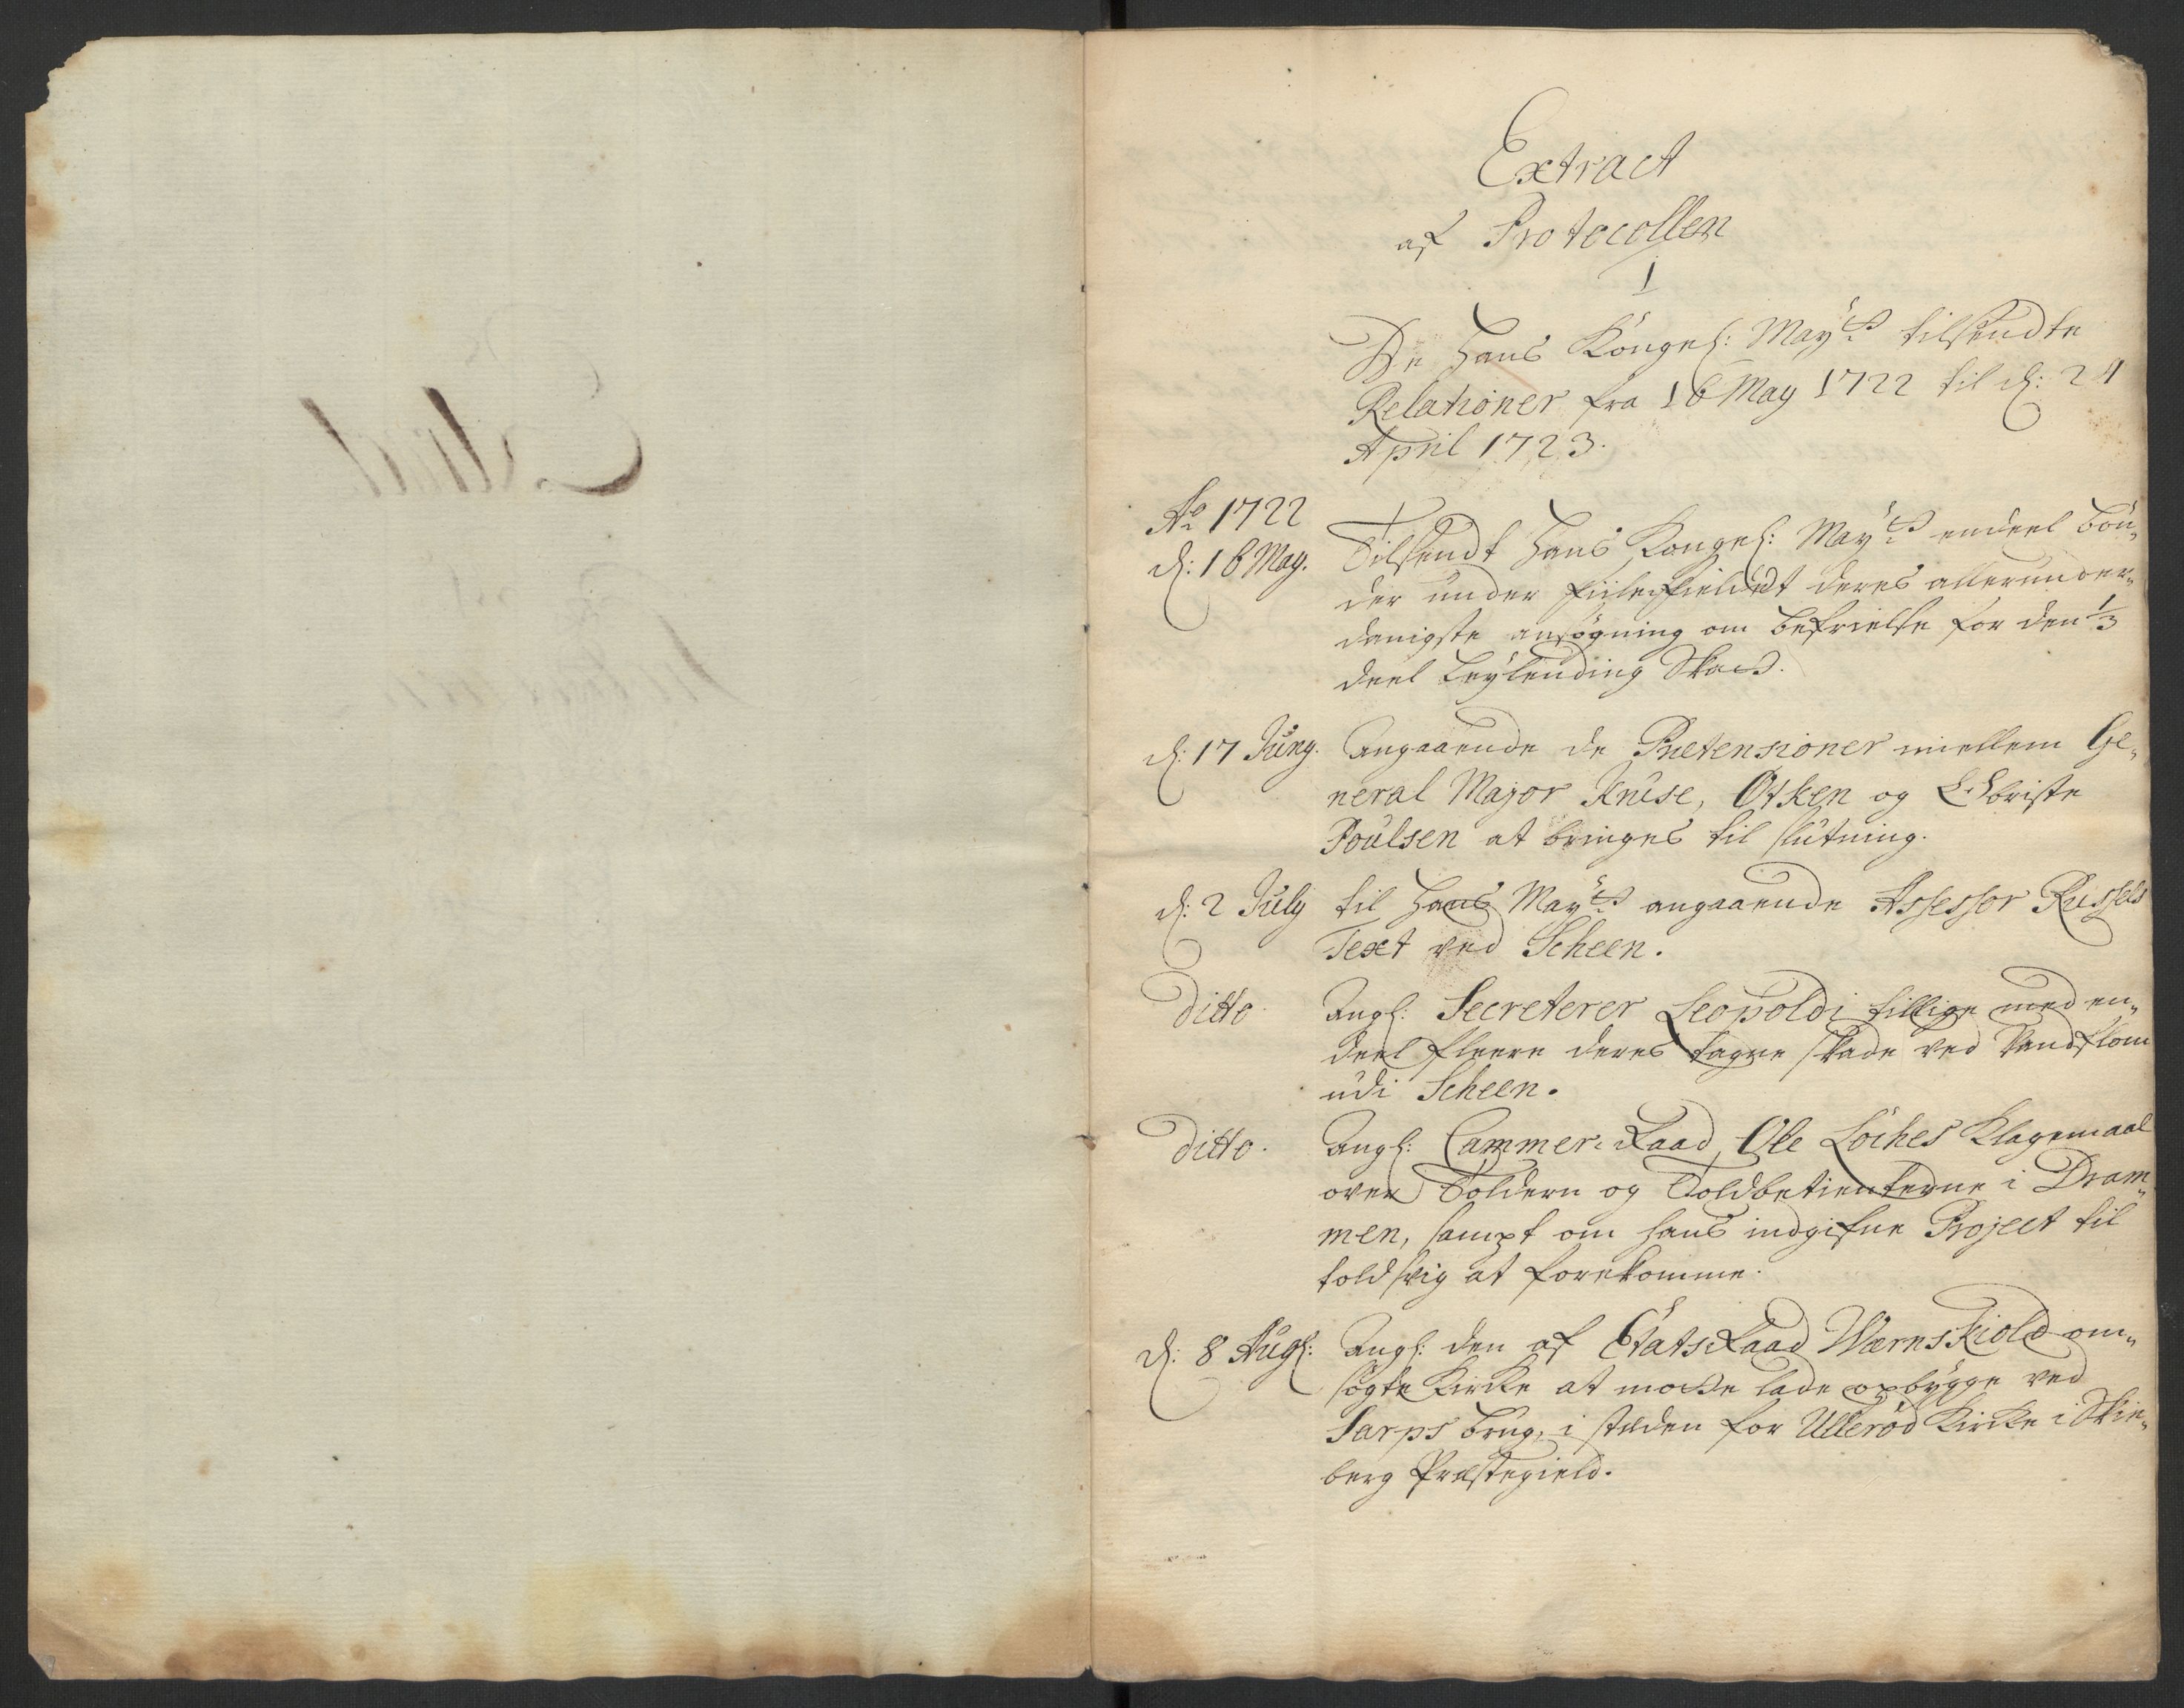 Extract
af Protocollen
1
De Hans Kongel: Mayts tilsendte
Relationer fra 16 May 1722 til d: 24
April 1723.
Ao 1722
d: 16 May. Tilsendt Hans Kongel: Mayts endeel bøn„
der under Fiilefieldet deres allerunder„
danigste ansøgning om befrielse for den 1/3
deel Leylending Skatt.
d: 17 Juny. Angaaende de Prætensioner mellem Ge„
neral Major Kruse, Øtken og Obriste
Poulsen at bringes til slutning.
d: 2 July til Hans Mayts angaaende Assessor Russels
Text ved Scheen.
ditto Angl: Secreterer Leopoldi tillige med en„
deel fleere deres tagne skade ved Vandflom
udi Scheen.
ditto. Angl: Cammer-Raad Ole Løches Klagemaal
over Tolderen og Toldbetienterne i Dram„
men, sampt om hans indgifne Project til
told svig at forekomme.
d: 8 Augl: Angl: den af EtatsRaad Wærnskiold om„
søgte Kircke at motte lade opbygge ved
Sarps brug, i stæden for Ullerød Kircke i Skie„
berg Præstegield.